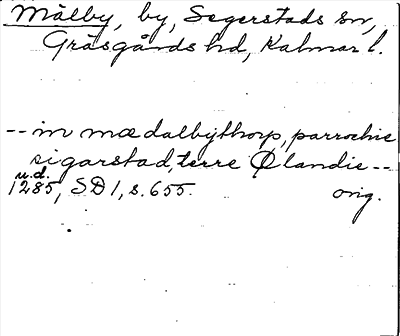 Målby, by, Segerstads sn,
Gräsgårds hd, Kalmar l.
-- in mædalbýthorp, parrochie
sigarstad, terre Ølandie --
u.d.
1285, SD 1, s. 655. orig.